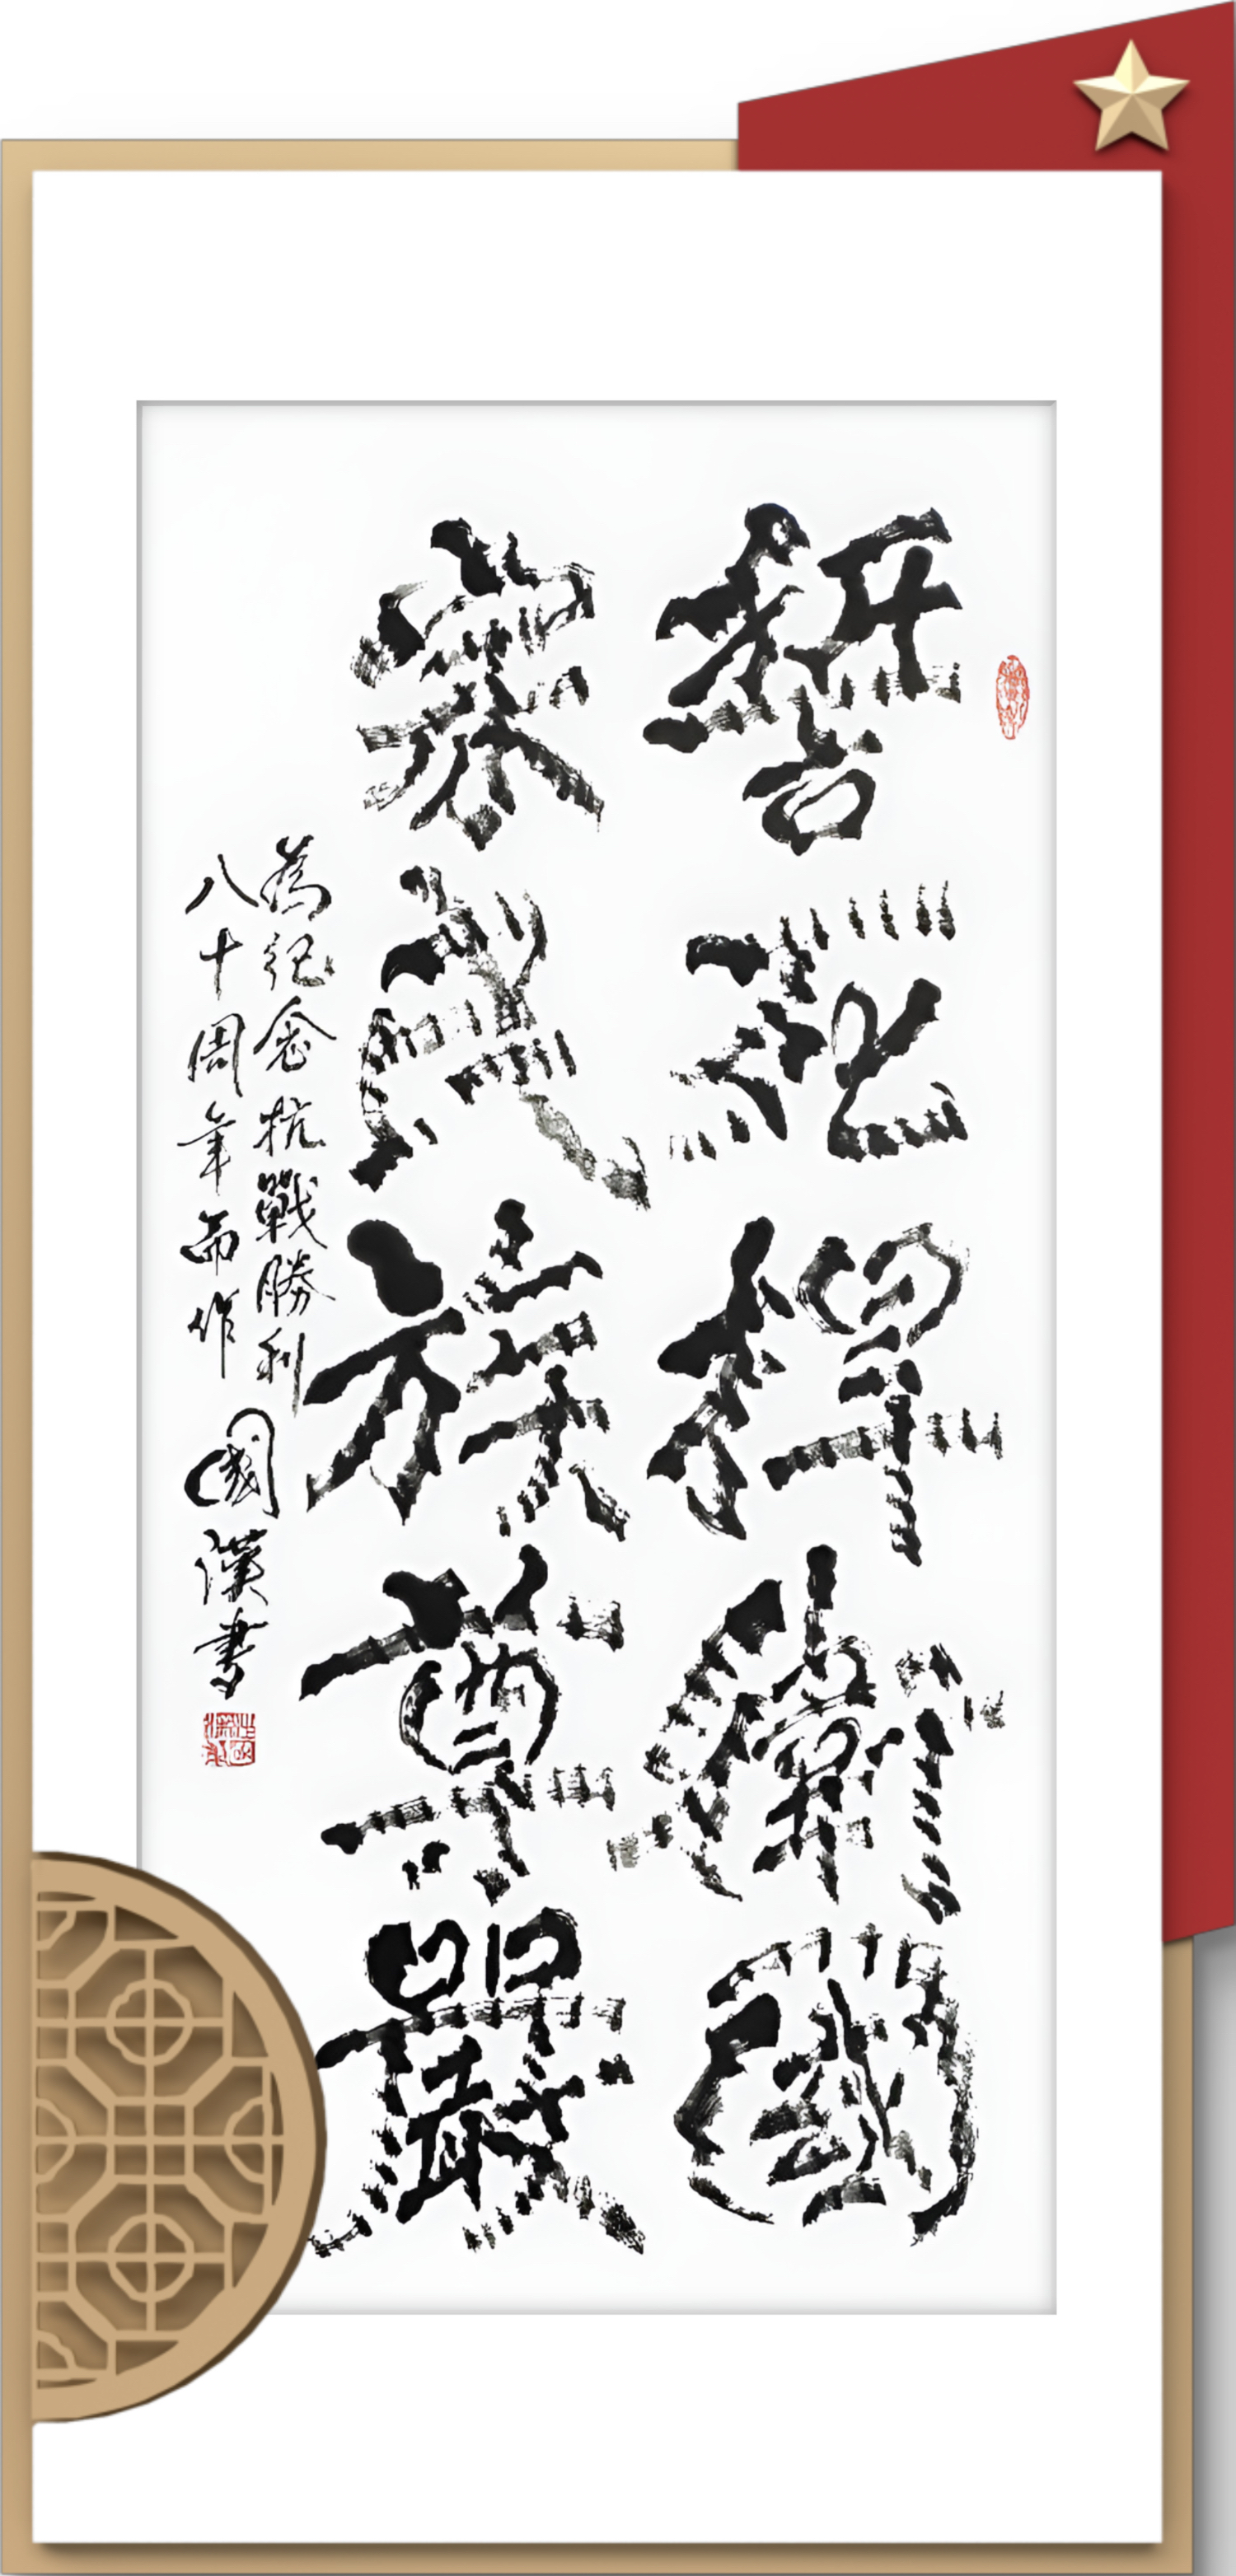 誓死捍衛國
家民族尊嚴
為紀念抗戰勝利
八十周年而作 國漢書